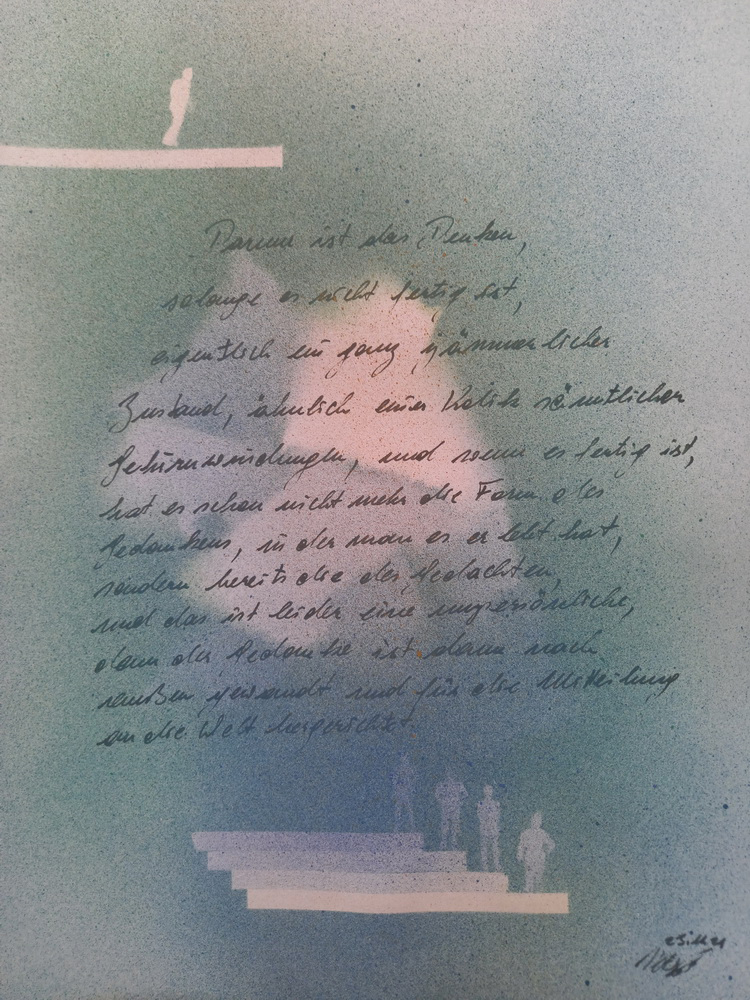 Darum ist das Denken,
solange es nicht fertig ist,
eigentlich ein ganz jämmerlicher
Zustand, ähnlich einer Kolik sämtlicher
Gehirnwindungen, und wenn es fertig ist,
hat es schon nicht mehr die Form des
Gedankens, in der man es erlebt hat,
sondern bereits die des Gedachten,
und das ist leider eine unpersönliche,
denn der Gedanke ist dann nach
außen gewandt und für die Mitteilung
an die Welt hergerichtet.